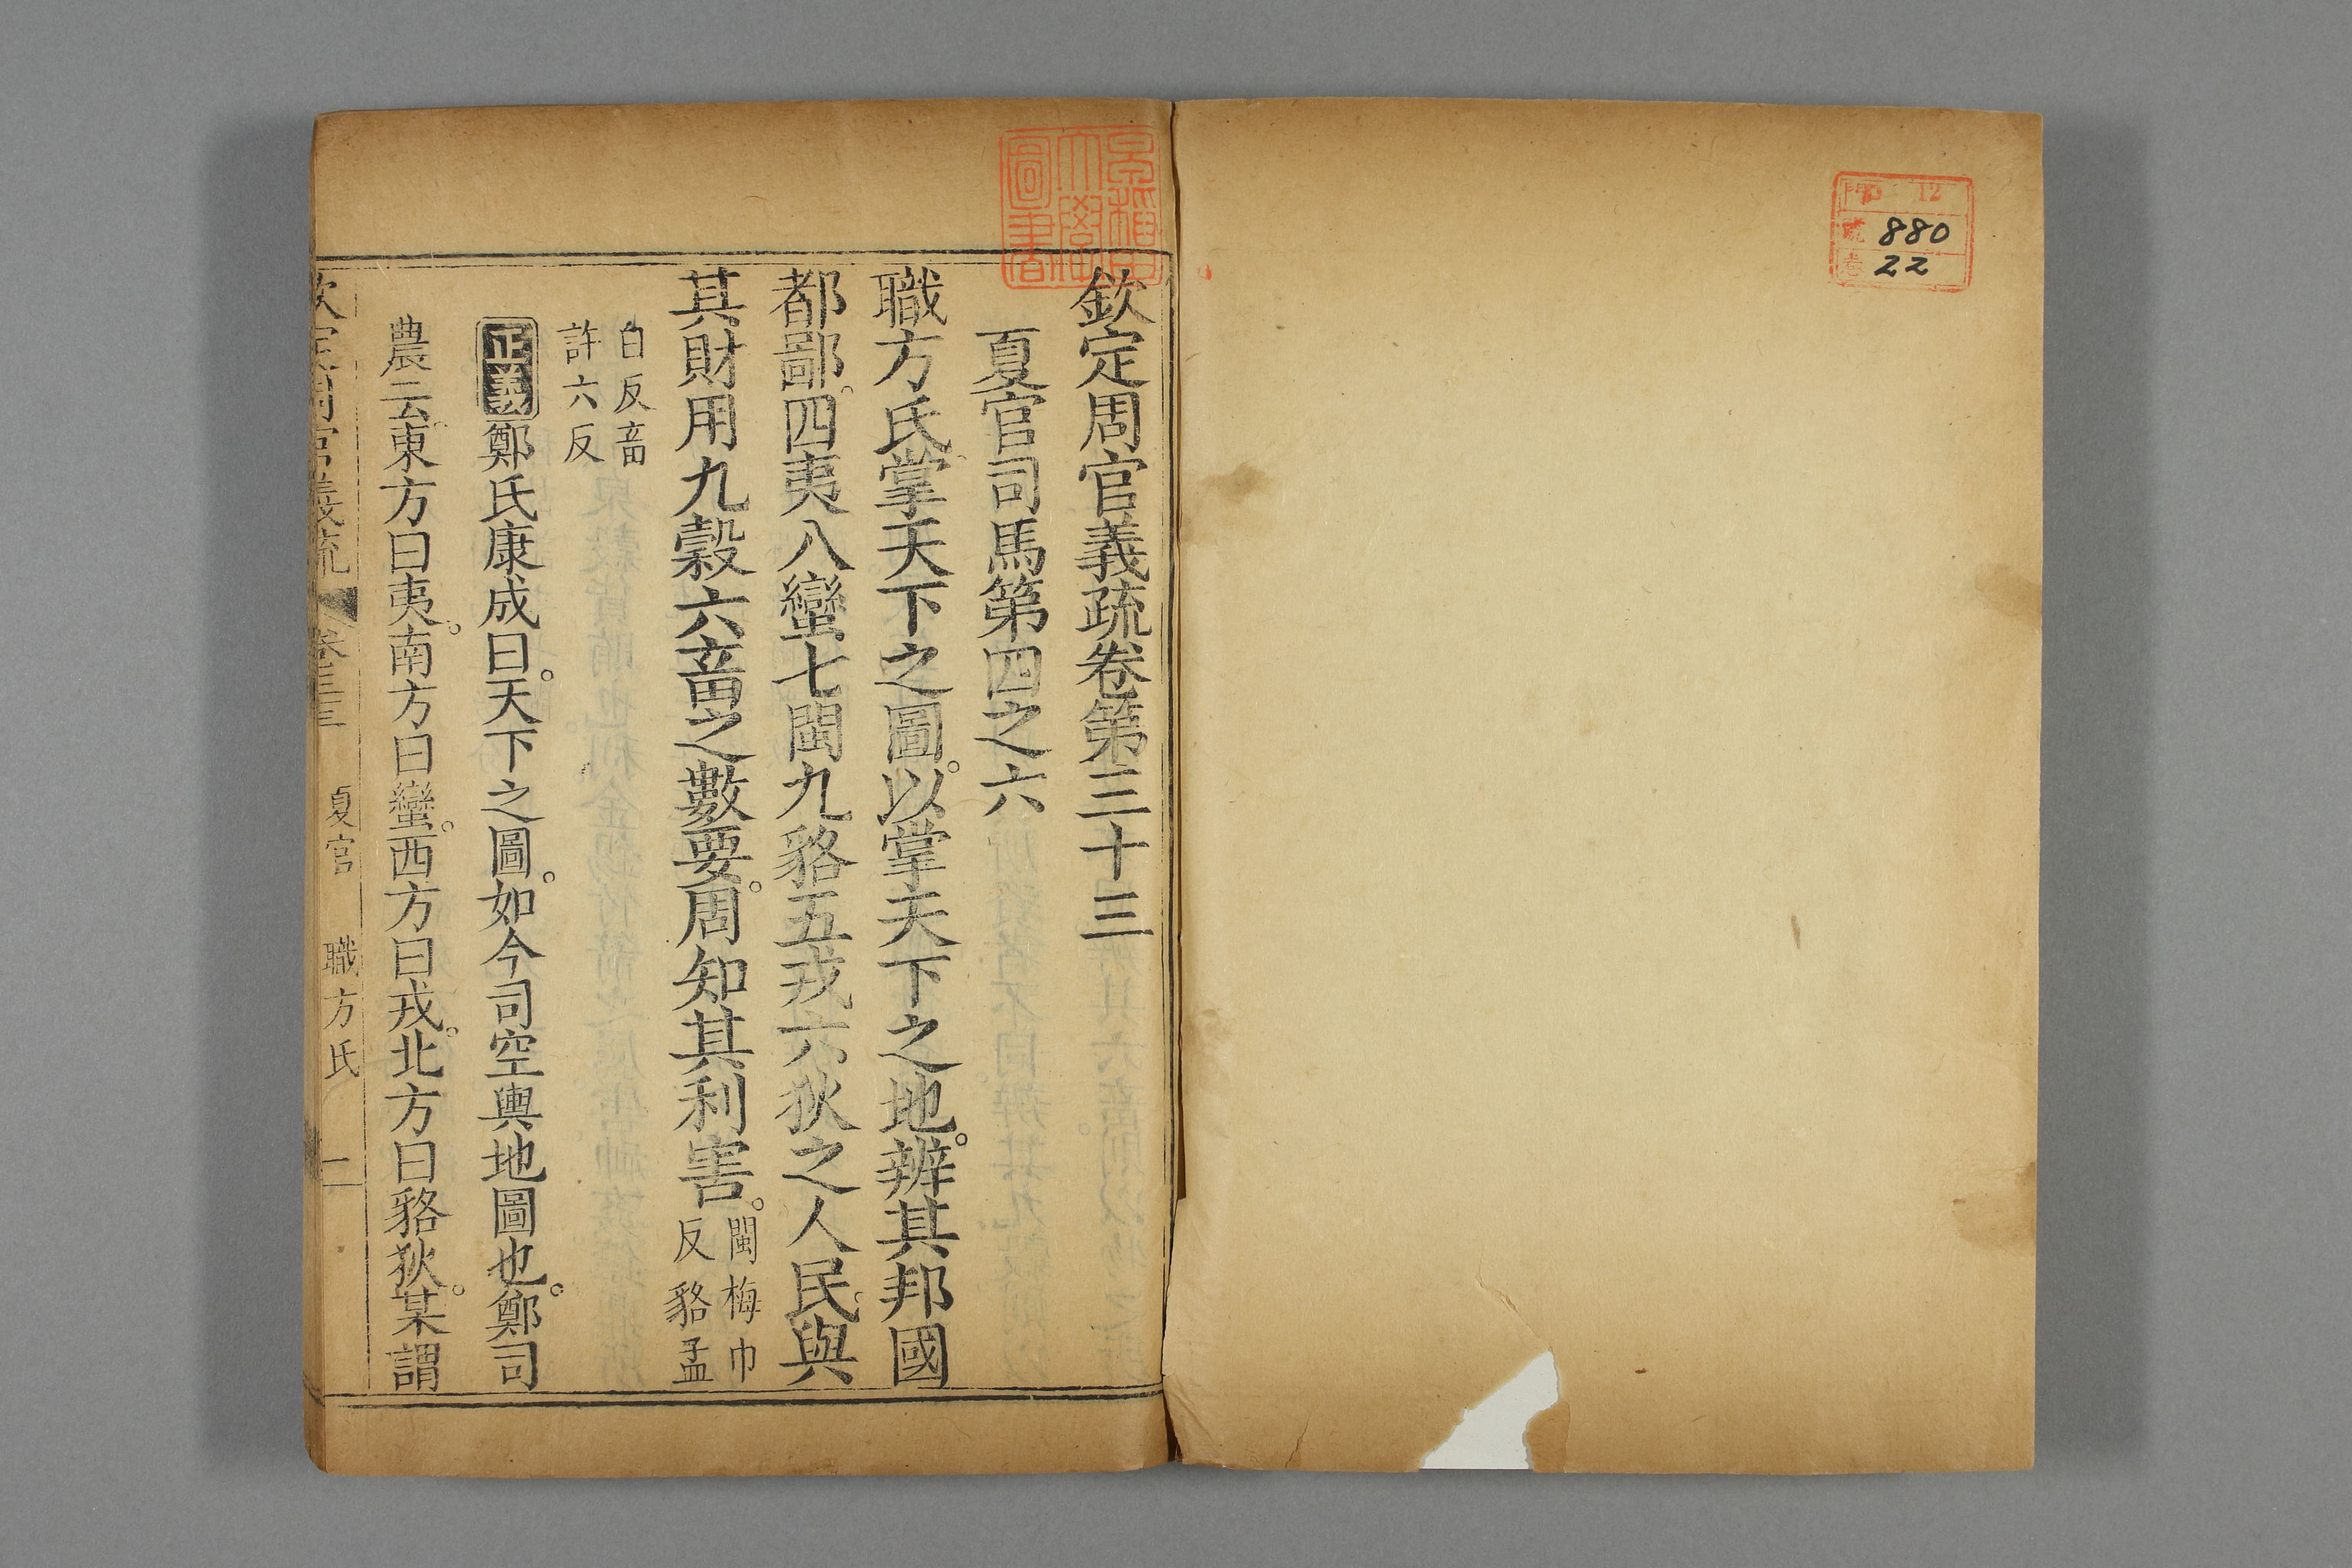 門 12
號 880
卷 22
早稻田大學圖書
欽定周官義疏卷第三十三
夏官司馬第四之六
職方氏掌天下之圖。以掌夫下之地。辨其邦國
都鄙。四夷八蠻七閩九貉五戎六狄之人民。與
其財用九穀六畜之數要。周知其利害。
閩梅巾
反貉孟
白反畜
許六反
正義鄭氏康成曰。天下之圖。如今司空輿地圖也。鄭司
農云。東方曰夷。南方曰蠻。西方曰戎。北方曰貉狄。某謂
欽定周官義疏 卷三十三 夏官 職方氏 一